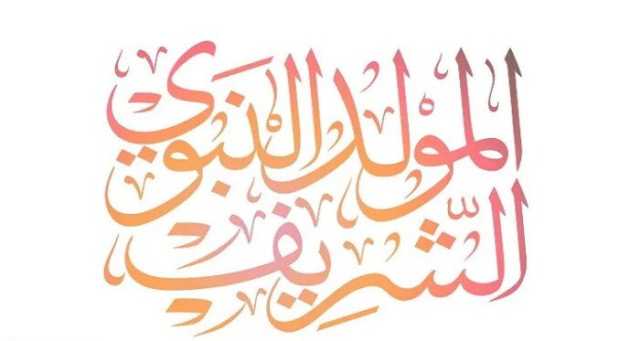 المَوْلِد النَّبَوِي
الشَّرِيف